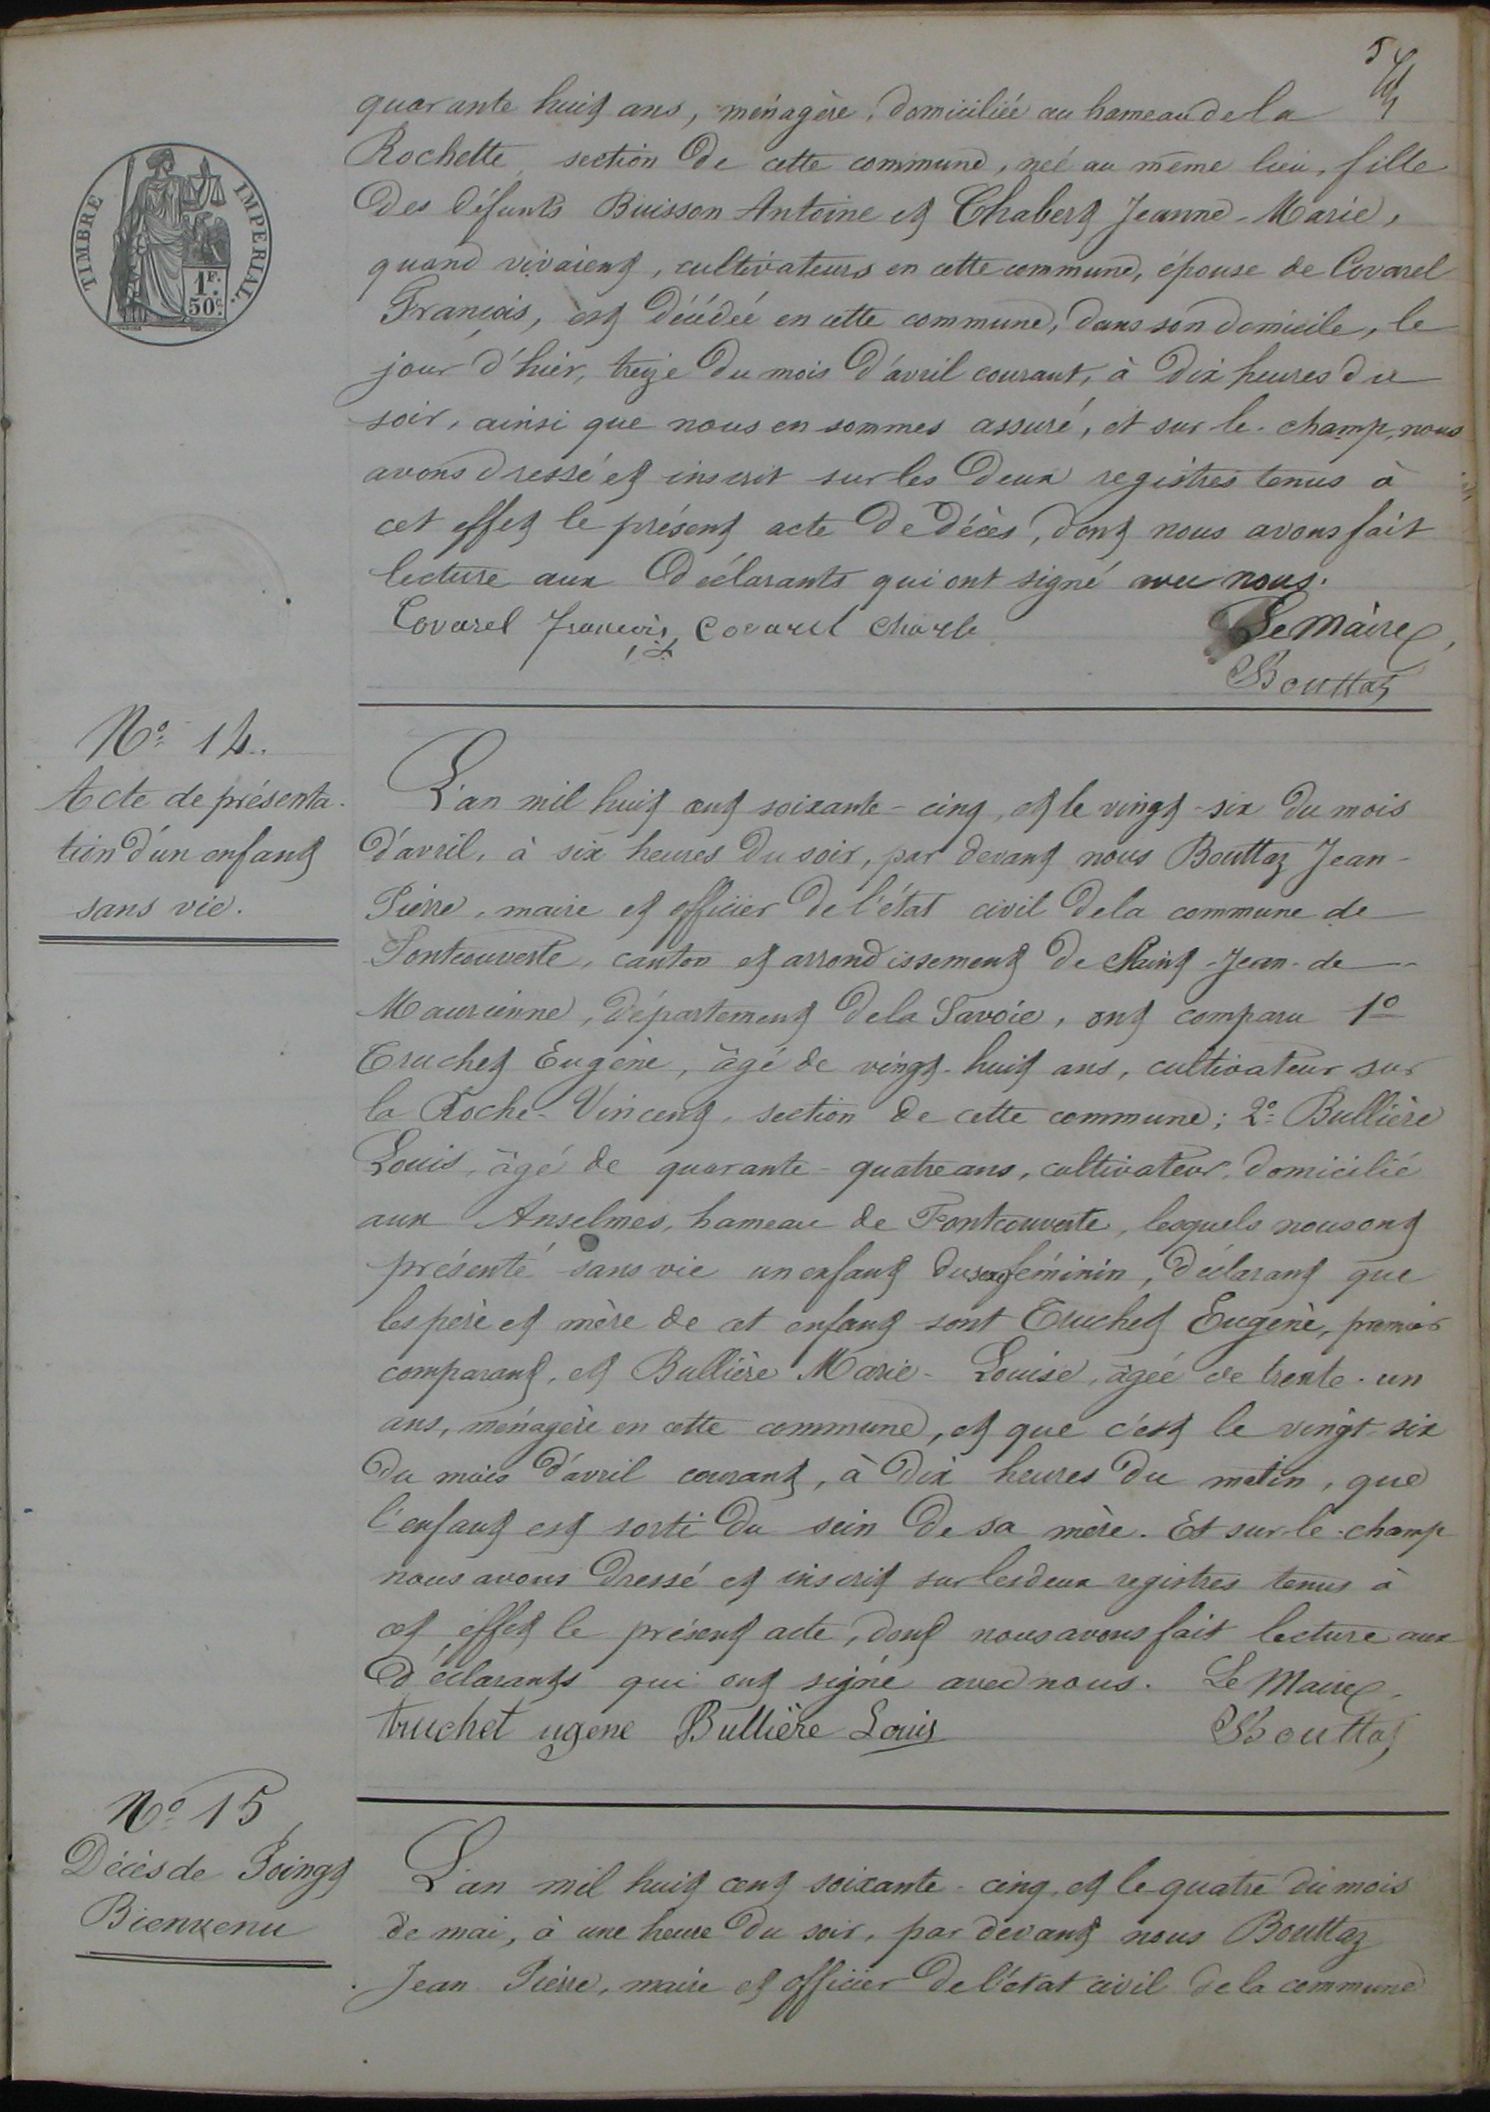 5
quarante huit ans, ménagère, domiciliée au hameau de la
Rochette, section de cette commune, neé au même lieu, fille
des défunts Buisson Antoine et Chabert Jeanne-Marie,
quand vivaient, cultivateurs en cette commune, épouse de Covarel
François, est décédée en cette commune, dans son domicile, le
jour d'hier, treize du mois d'avril courant, à dix heures du
soir, ainsi que nous en sommes assuré, et sur le-champ, nous
avons dressé et inscrit sur les deux registres tenus à
cet effet le présent acte de décès, dont nous avons fait
lecture aux déclarants qui ont signé avec nous.
Covarel François, Covarel Charle
Le Maire,
Bouttaz
TIMBRE IMPERIAL.
1F.
50c.
No. 14.
Acte de présenta-
tion d'un enfant
sans vie.
L'an mil huit cent soixante-cinq, et le vingt-six du mois
d'avril, à six heures du soir, par devant nous Bouttaz Jean-
Pierre, maire et officier de l'état civil de la commune de
Fontcouverte, canton et arrondissement de Saint-Jean-de-
Maurienne, département de la Savoie, ont comparu 1o
Truchet Eugène, âgé de vingt-huit ans, cultivateur sur
la Roche-Vincent, section de cette commune; 2o Bullière
Louis, âgé de quarante-quatre ans, cultivateur, domicilié
aux Anselmes, hameau de Fontcouverte, lesquels nous ont
présenté sans vie un enfant du sexe féminin, déclarant que
les père et mère de cet enfant sont Truchet Eugène, premier
comparant, et Bullière Marie-Louise, âgée de trente-un
ans, ménagère en cette commune, et que c'est le vingt-six
du mois d'avril courant, à dix heures du matin, que
l'enfant est sorti du sein de sa mère. Et sur-le-champ
nous avons dressé et inscrit sur les deux registres tenus à
cet effet le présent acte, dont nous avons fait lecture aux
déclarants qui ont signé avec nous. Le Maire,
truchet ugene Bullière Louis
Bouttaz
No 15
Décès de Pointet
Bienvenu
L'an mil huit cent soixante-cinq, et le quatre du mois
de mai, à une heure du soir, par devant nous Bouttaz
Jean Pierre, maire et officier de l'état civil de la commune